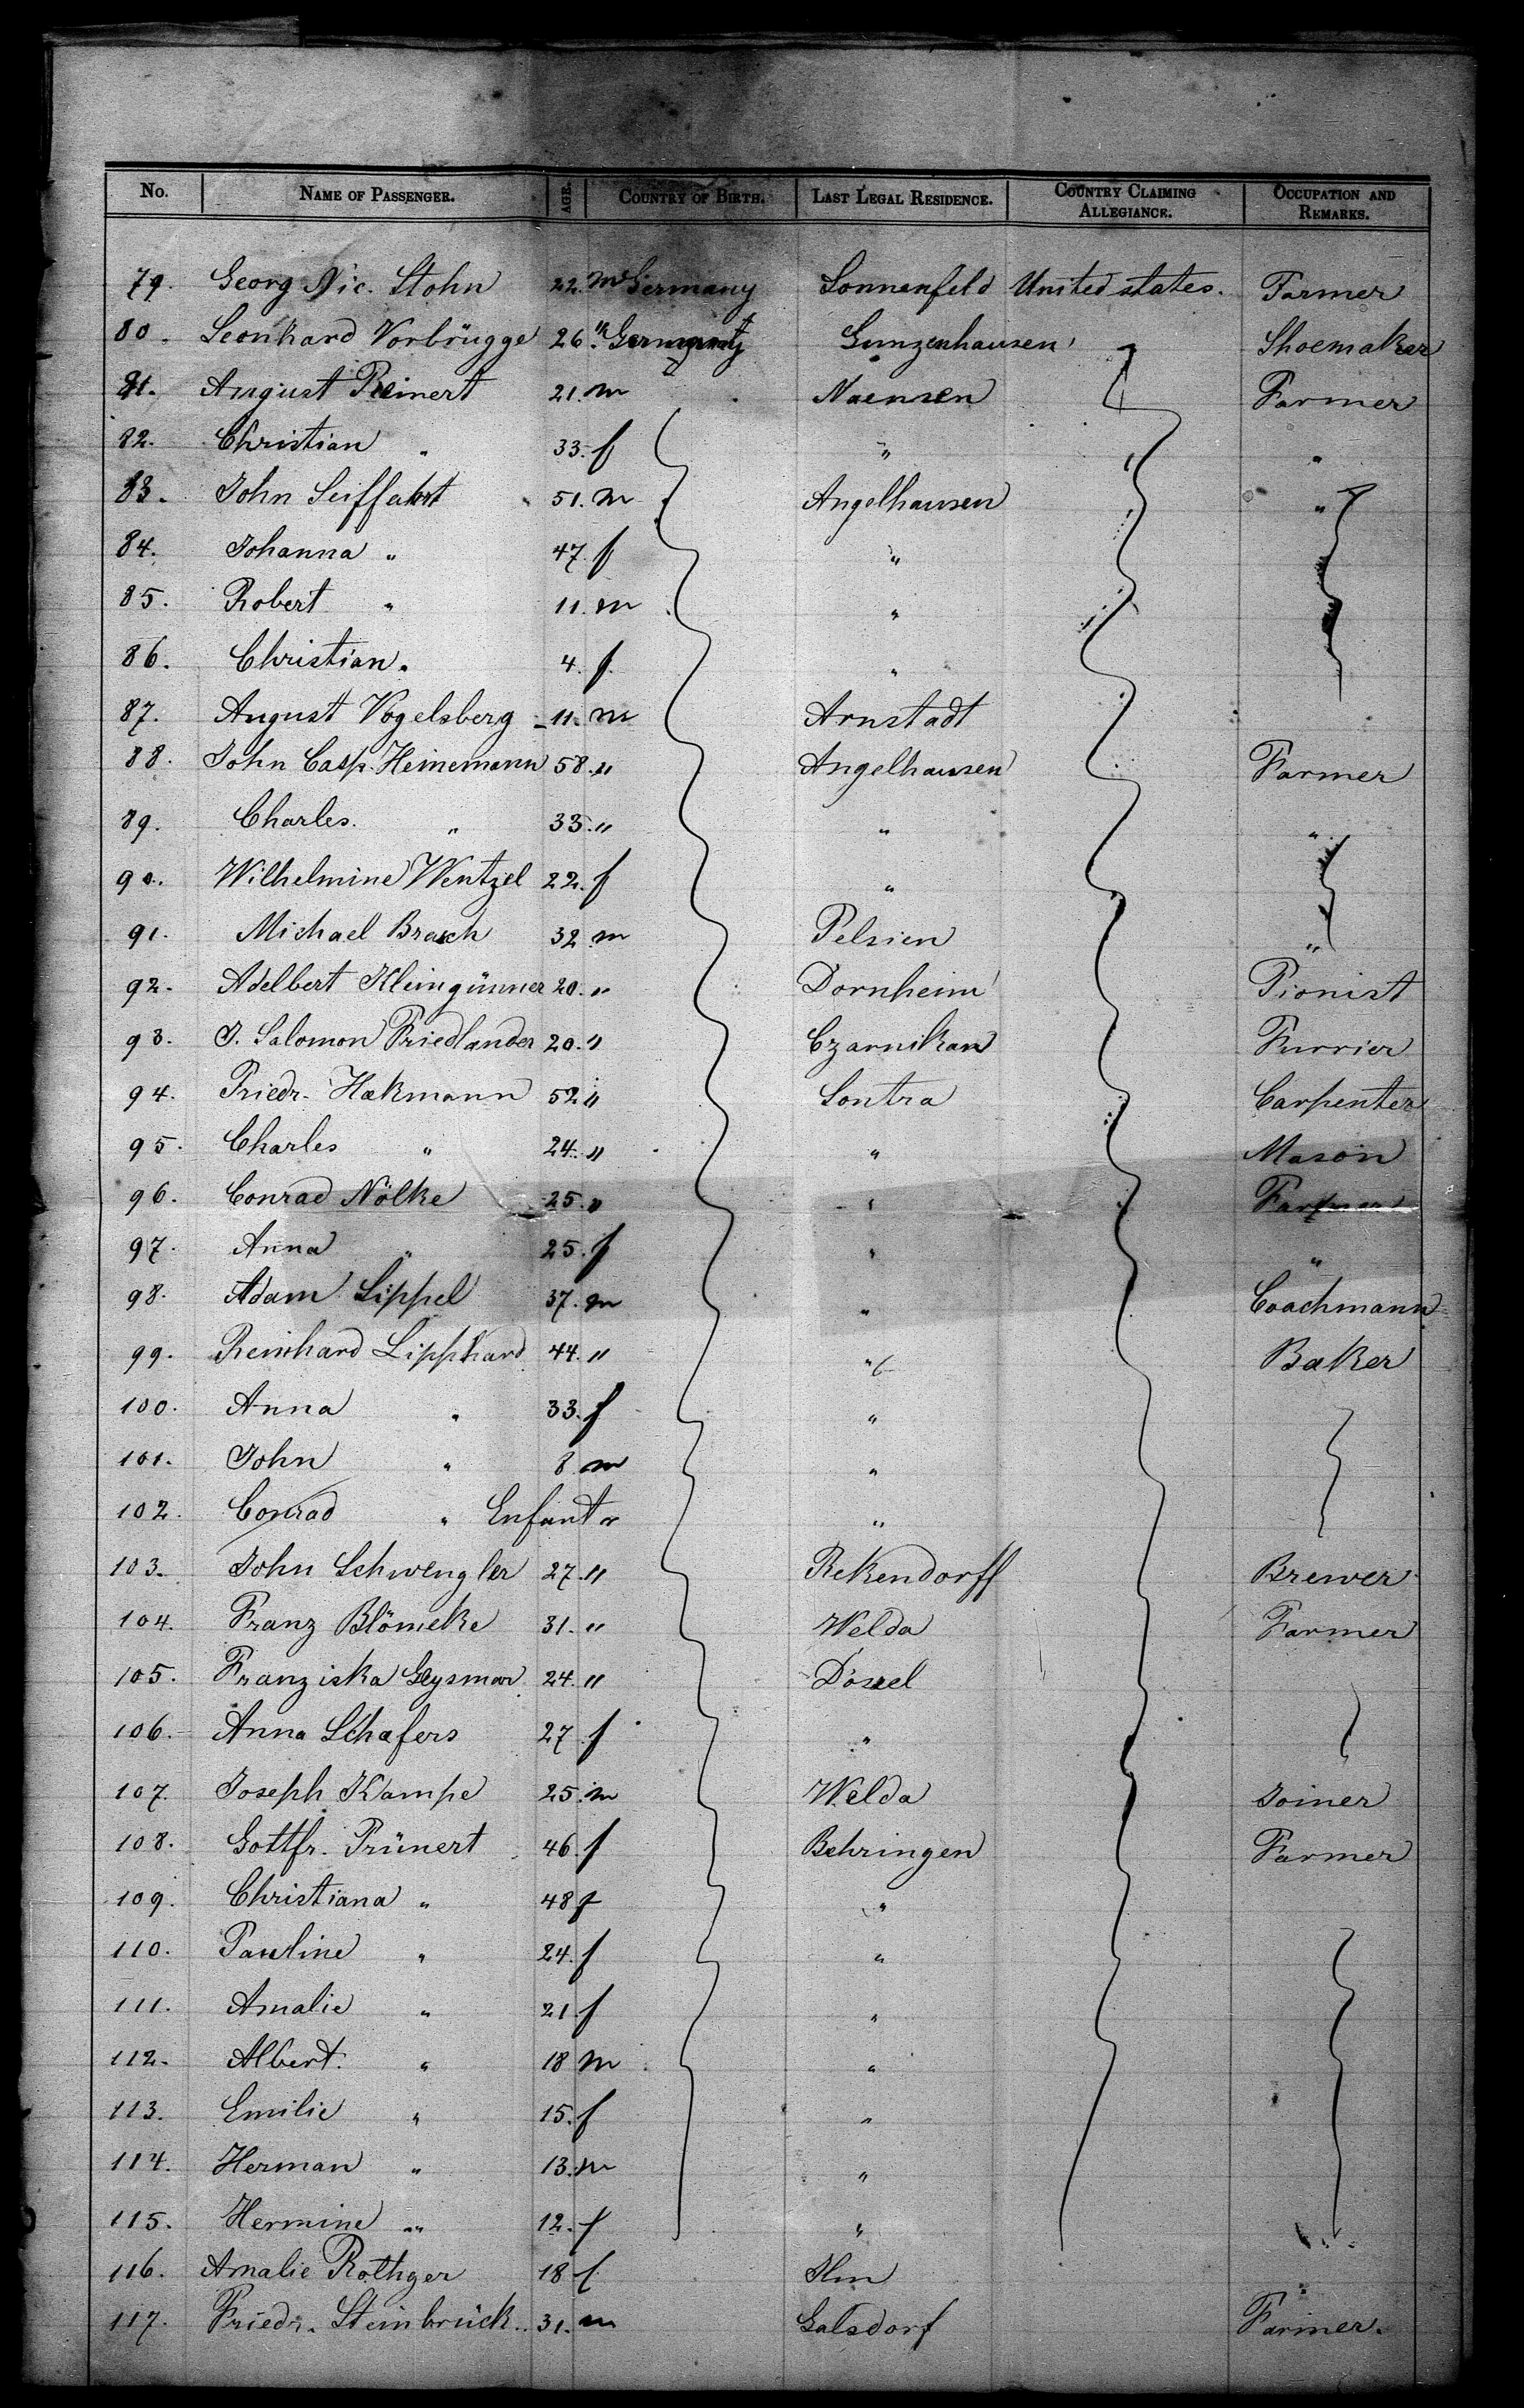 No. NAME OF PASSENGER. AGE. COUNTRY OF BIRTH. LAST LEGAL RESIDENCE. COUNTRY CLAIMING ALLEGIANCE. OCCUPATION AND REMARKS.
79. Georg Nic. Stohn 22. m Germany Sonnenfeld United states. Farmer
80. Leonhard Vorbrügge 26. " Germany Gunzenhausen Shoemaker
81. August Reinert 21. m Naensen Farmer
82. Christian " 33. f " "
83. John Seiffahrt 51. m Angelhausen "
84. Johanna " 47. f "
85. Robert " 11. m "
86. Christian " 4. f. "
87. August Vogelsberg 11. m Arnstadt
88. John Casp. Heinemann 58. " Angelhausen Farmer
89. Charles. " 33. " " "
90. Wilhelmine Wentzel 22. f "
91. Michael Brasch 32 m Pelsien "
92. Adelbert Kleingünner 20. " Dornheim Pionist
93. J. Salomon Friedlander 20. " Czarnikau Furrier
94. Friedr. Hakmann 52 " Sontra Carpenter
95. Charles " 24. " " Mason
96. Conrad Nölke 25. " " Farmer
97. Anna " 25. f " "
98. Adam Lippel 37. m " Coachmann
99. Reinhard Lipphard 44. " " Baker
100. Anna " 33. f "
101. John " 8 m "
102. Conrad " Enfant " "
103. John Schwengler 27. " Rekendorff Brewer
104. Franz Blömeke 31. " Welda Farmer
105. Franziska Geysmar 24. " Dössel
106. Anna Schafers 27 f "
107. Joseph Kampe 25. m Welda Joiner
108. Gottfr. Prünert 46. f Behringen Farmer
109. Christiana " 48 f "
110. Pauline " 24. f "
111. Amalie " 21. f "
112. Albert. " 18 m "
113. Emilie " 15. f "
114. Herman " 13. m "
115. Hermine " 12. f "
116. Amalie Rothger 18 f Ilm
117. Friedr. Steinbrück.. 31. m Galsdorf Farmer.